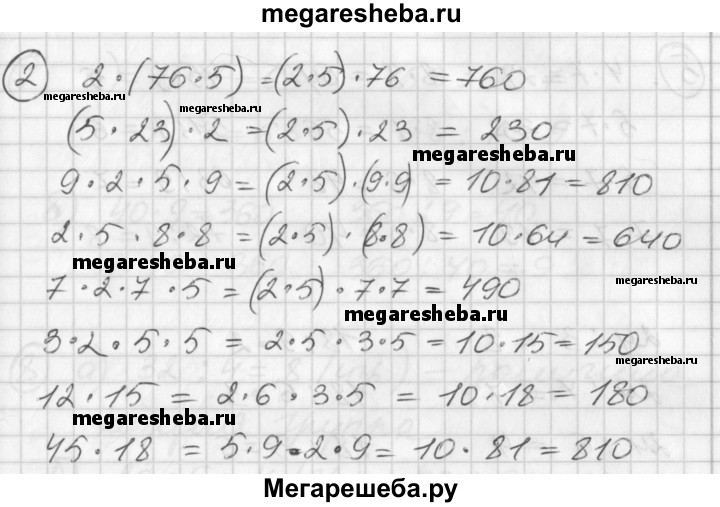 megaresheba.ru
2 2·(76·5) =(2·5)·76 =760
megaresheba.ru megaresheba.ru
(5·23)·2 =(2·5)·23 = 230
megaresheba.ru
9·2·5·9=(2·5)·(9·9) = 10·81=810
2·5·8·8=(2·5)·(8·8) = 10·64=640
megaresheba.ru
7·2·7·5=(2·5)·7·7=490
megaresheba.ru
megaresheba.ru
3·2·5·5 = 2·5·3·5=10·15=150
megaresheba.ru
12·15 = 2·6·3·5 = 10·18=180
megaresheba.ru
megaresheba.ru
45·18 = 5·9·2·9= 10·81=810
Мегарешеба.ру